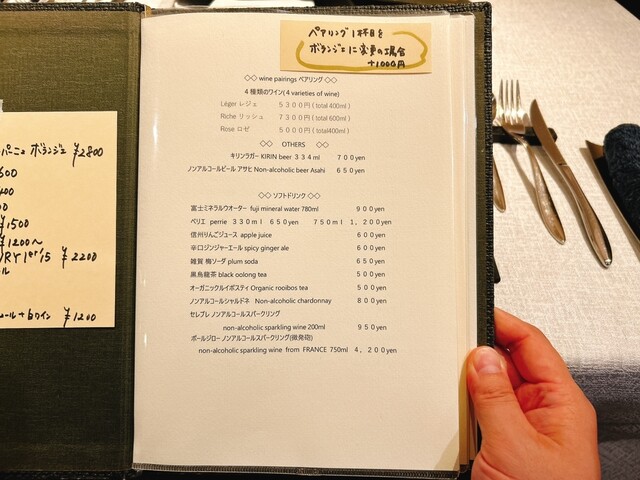 ペアリング1杯目を
ボランジェに変更の場合
+1000円
◇◇ wine pairings ペアリング ◇◇
4種類のワイン(4 varieties of wine)
Léger レジェ 5300円(total 400ml)
Riche リッシュ 7300円(total 600ml)
Rose ロゼ 5000円(total400ml)
◇◇ OTHERS ◇◇
キリンラガー KIRIN beer 334ml 700yen
ノンアルコールビール アサヒ Non-alcoholic beer Asahi 650yen
◇◇ ソフトドリンク ◇◇
富士ミネラルウオーター fuji mineral water 780ml 900yen
ペリエ perrie 330ml 650yen 750ml 1,200yen
信州りんごジュース apple juice 600yen
辛口ジンジャーエール spicy ginger ale 600yen
雑賀 梅ソーダ plum soda 650yen
黒烏龍茶 black oolong tea 500yen
オーガニックルイボスティ Organic rooibos tea 500yen
ノンアルコールシャルドネ Non-alcoholic chardonnay 800yen
セレブレ ノンアルコールスパークリング
non-alcoholic sparkling wine 200ml 950yen
ポールジロー ノンアルコールスパークリング(微発砲)
non-alcoholic sparkling wine from FRANCE 750ml 4,200yen
パーニュ ボランジェ ¥2800
600
400
00
¥1500
¥1200~
RY 1er '15 ¥2200
ール
ール+白ワイン ¥1200